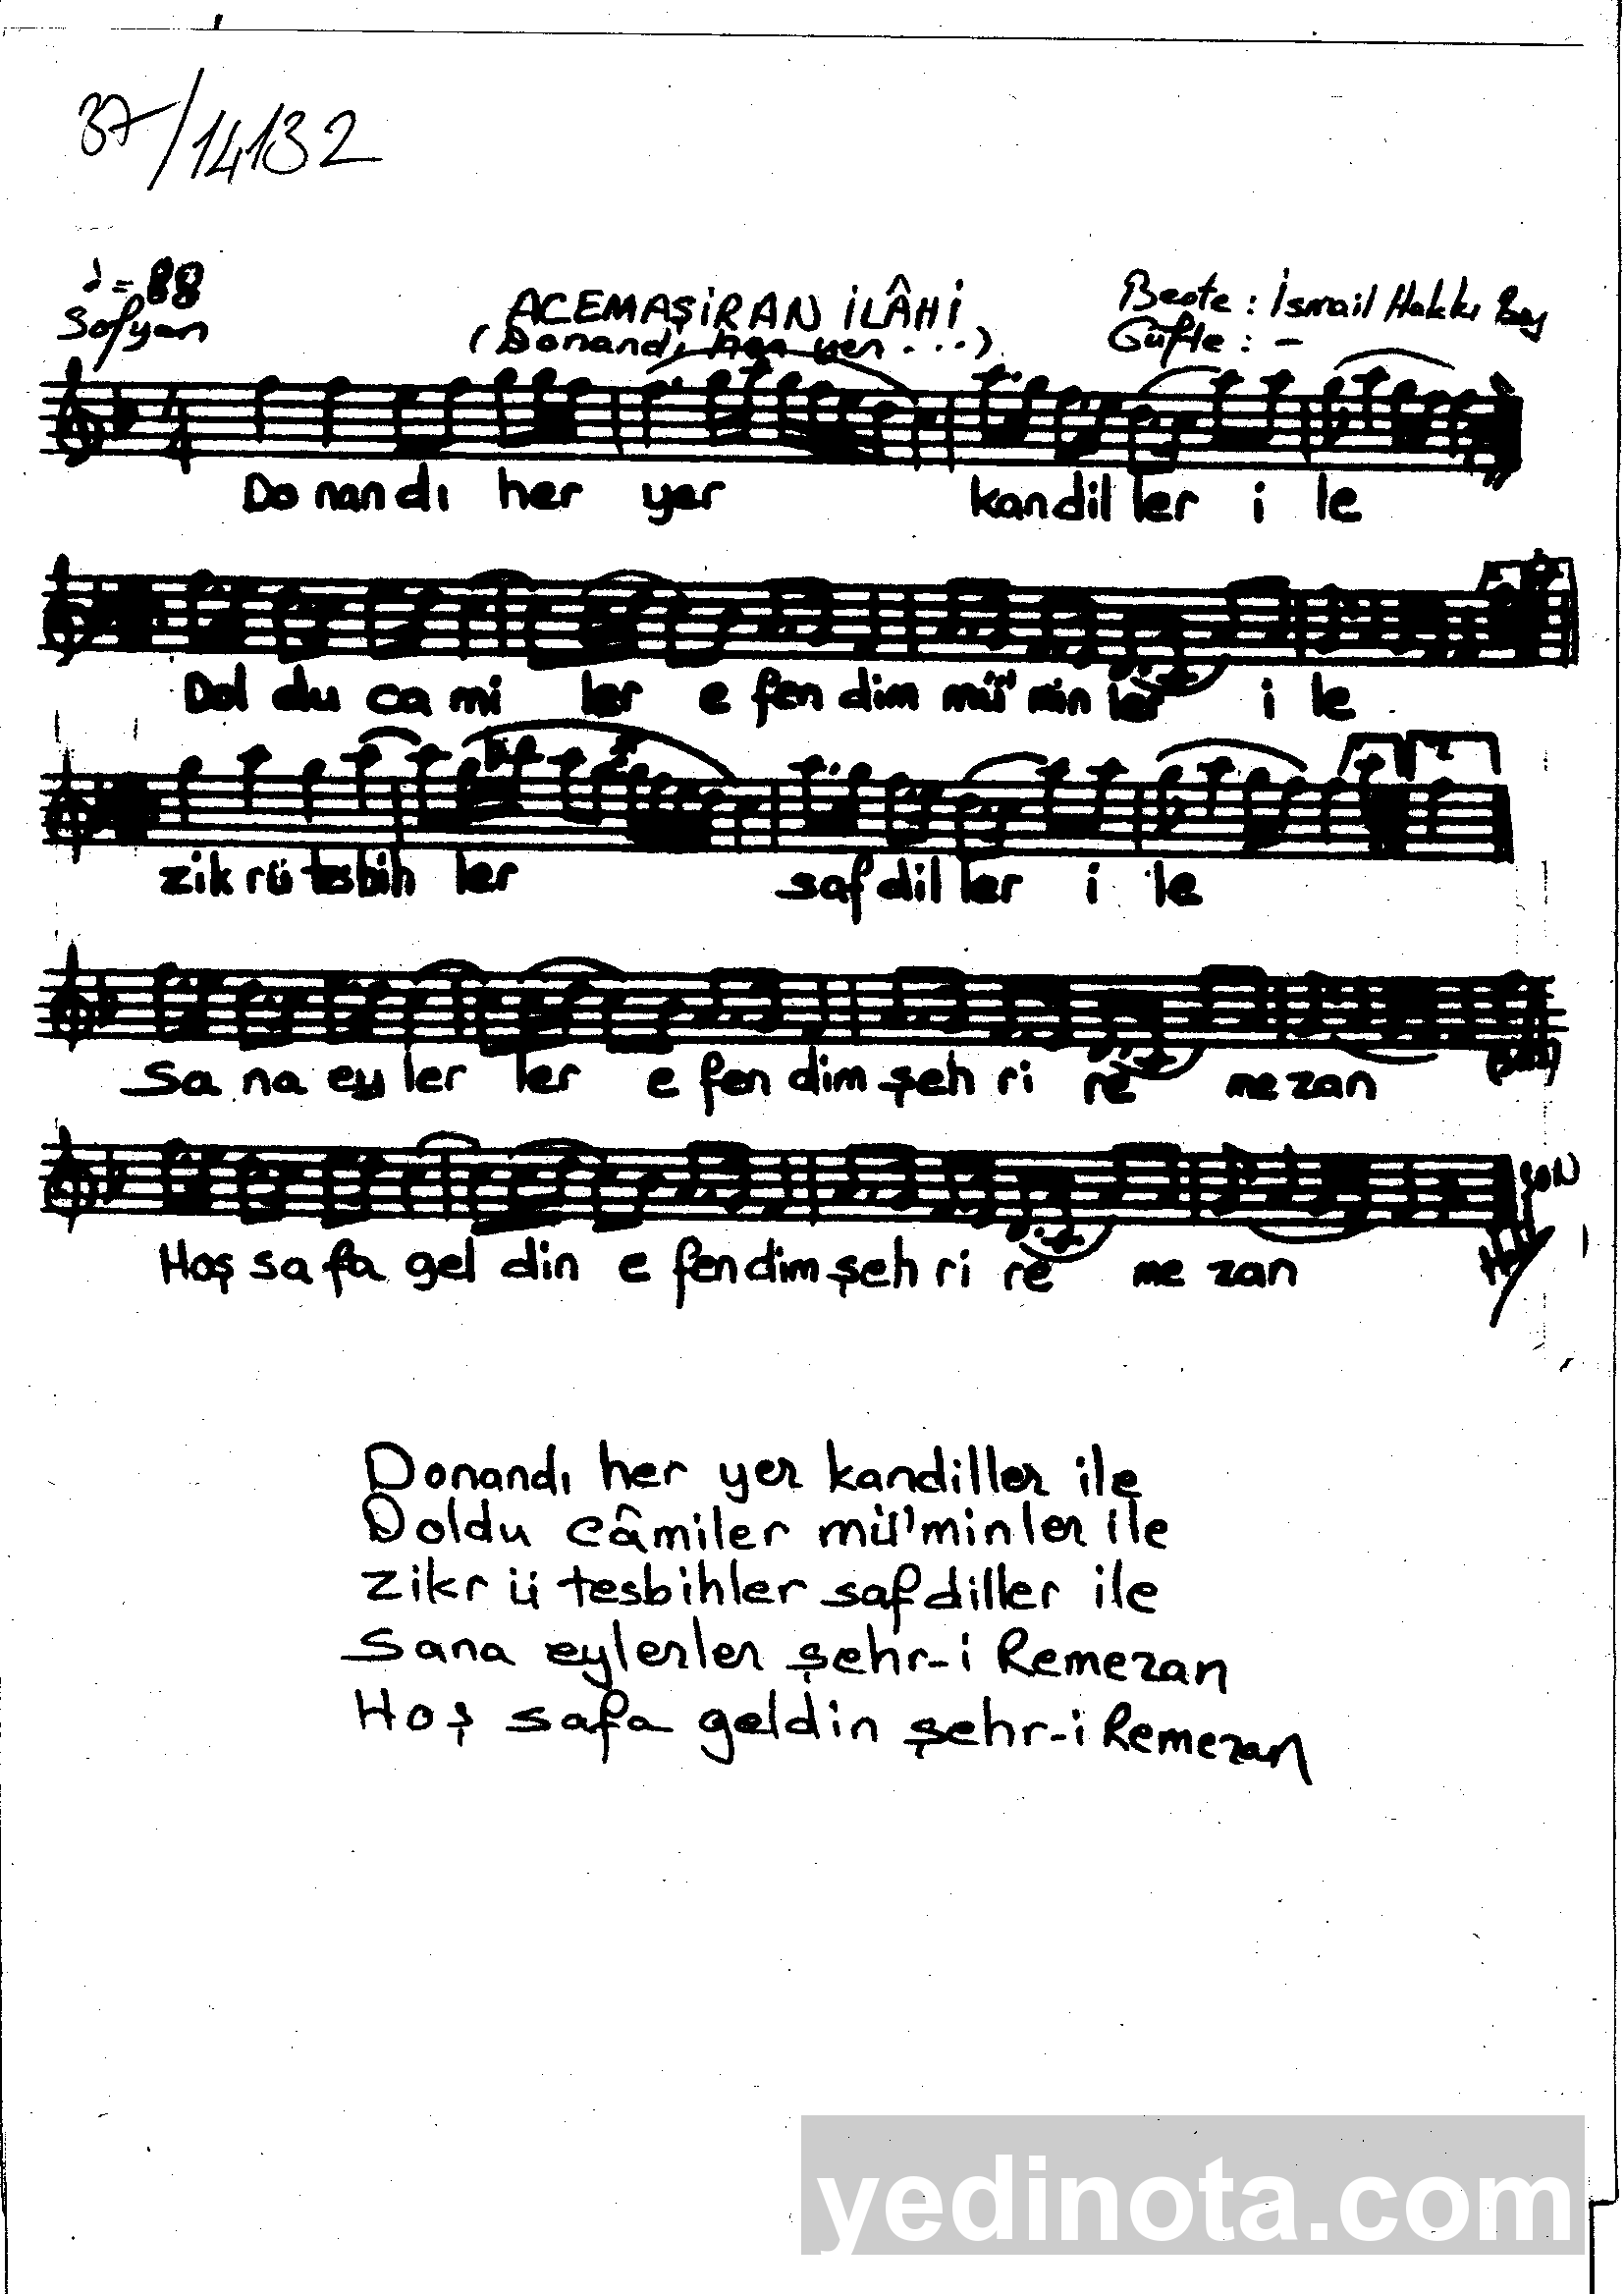 37/14132
♩ = 88
Sofyan
ACEMAŞİRAN İLÂHİ
(Donandı her yer ...)
Beste : İsmail Hakkı Bey
Güfte : -
Do nandı her yer kandil ler i le
Dol du ca mi ler e fen dim mü' min ler i le
zik rü tesbih ler saf dil ler i le
Sa na ey ler ler e fen dim şeh ri re me zan
Hoş sa fa gel din e fen dim şeh ri re me zan
SON
Donandı her yer kandiller ile
Doldu câmiler mü'minler ile
zikr ü tesbihler safdiller ile
Sana eylerler şehr-i Remezan
Hoş safa geldin şehr-i Remezan
yedinota.com